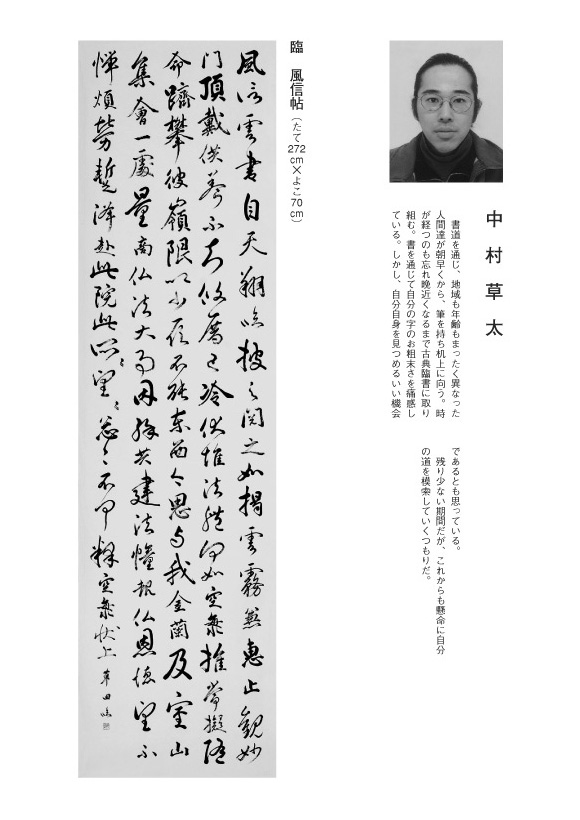 中村草太
書道を通じ、地域も年齢もまったく異なった
人間達が朝早くから、筆を持ち机上に向う。時
が経つのも忘れ晩近くなるまで古典臨書に取り
組む。書を通じて自分の字のお粗末さを痛感し
ている。しかし、自分自身を見つめるいい機会
であるとも思っている。
残り少ない期間だが、これからも懸命に自分
の道を模索していくつもりだ。
臨　風信帖（たて272cm×よこ70cm）
風信雲書自天翔臨披之閲之如掲雲霧兼惠止觀妙
门頂戴供養不知攸厝已冷伏惟法體何如空海推常擬随
命躋攀彼嶺限以少願不能東西今思与我金蘭及室山
集會一處量商仏法大事因縁共建法幢報仏恩徳望不
憚煩勞蹔降赴此院此所望々々忩々不具釋空海状上